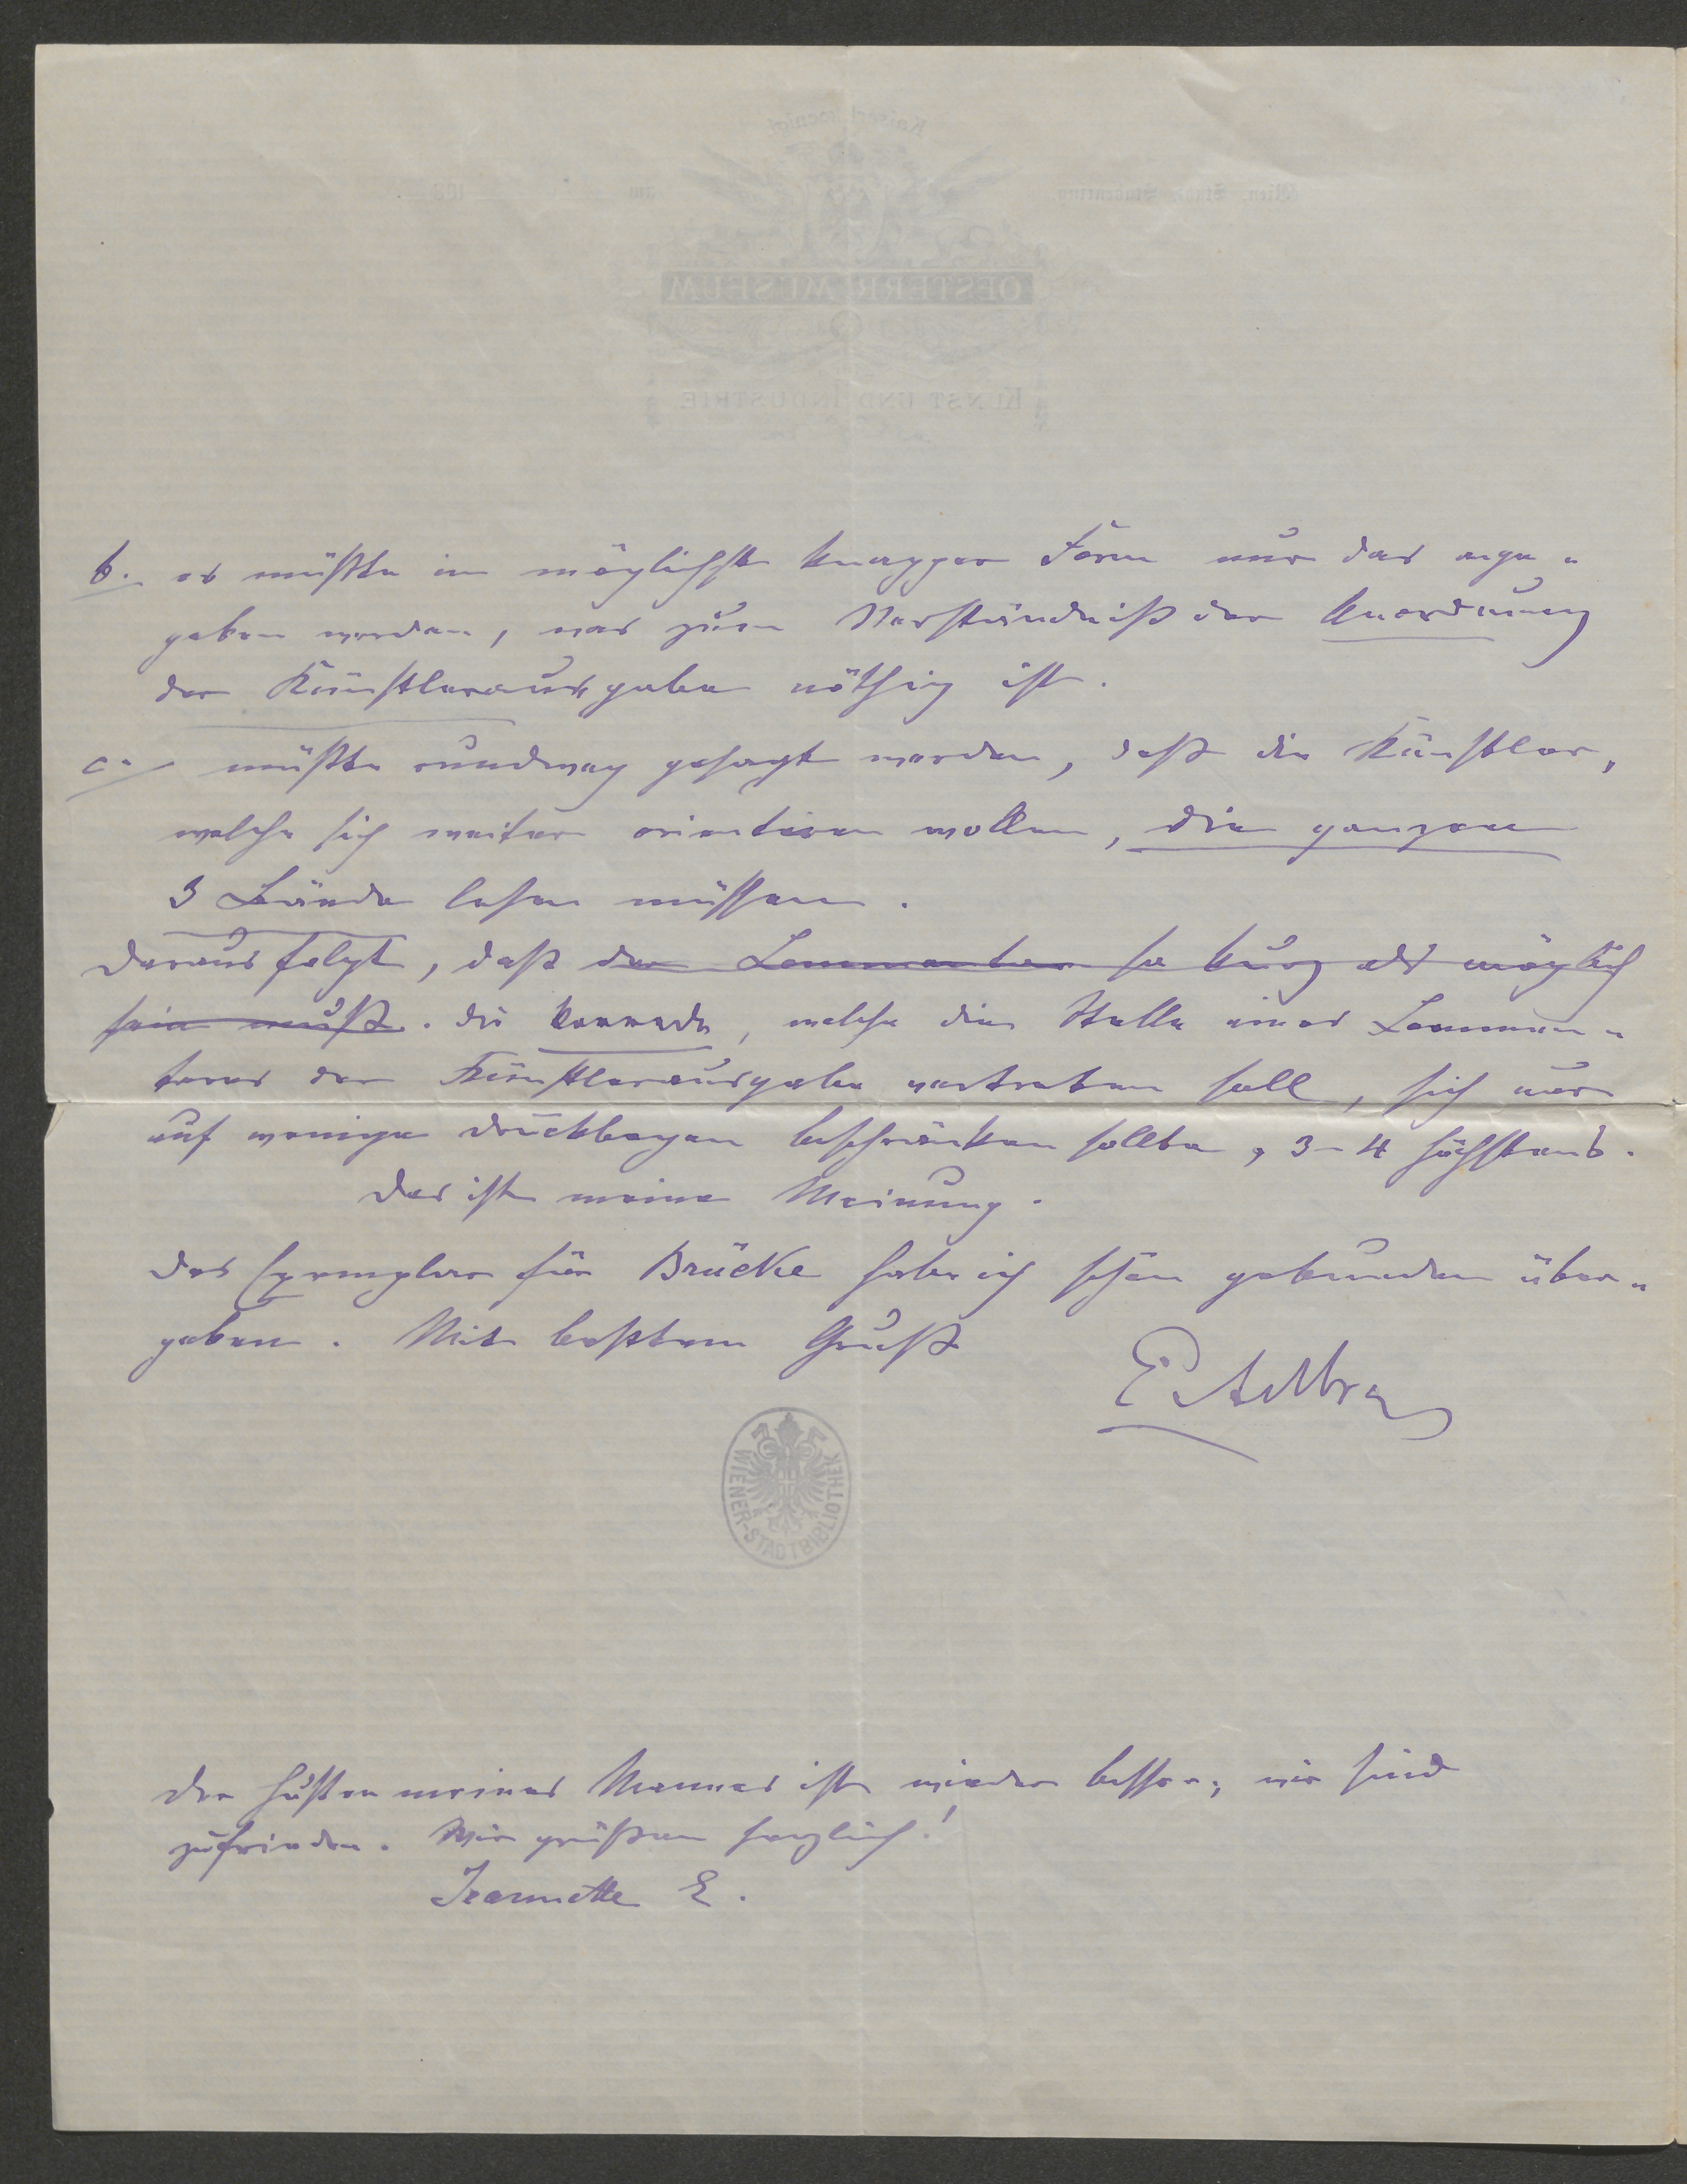 b. es müßte in möglichst knapper Form nur das ange„
geben werden, was zum Verständniß der Anordnung
der Künstlerausgabe nöthig ist.
c. müßte rundweg gesagt werden, daß die Künstler,
welche sich weiter orientiren wollen, die ganzen
3 Bände lesen müssen.
Daraus folgt, daß der Commentar so kurz als möglich
sein muß. die Vorrede, welche die Stelle eines Commen„
tares der Künstlerausgabe vertreten soll, sich nur
auf wenige Druckbogen beschränken sollte, 3–4 höchstens.
Das ist meine Meinung.
Das Exemplar für Brücke habe ich schön gebunden über„
geben. Mit bestem Gruß
WIENER-STADTBIBLIOTHEK
Der Husten meines Mannes ist wieder besser, wir sind
zufrieden. Wir grüßen herzlich!
Jeannette E.
OESTERR MUSEUM
KUNST UND INDUSTRIE